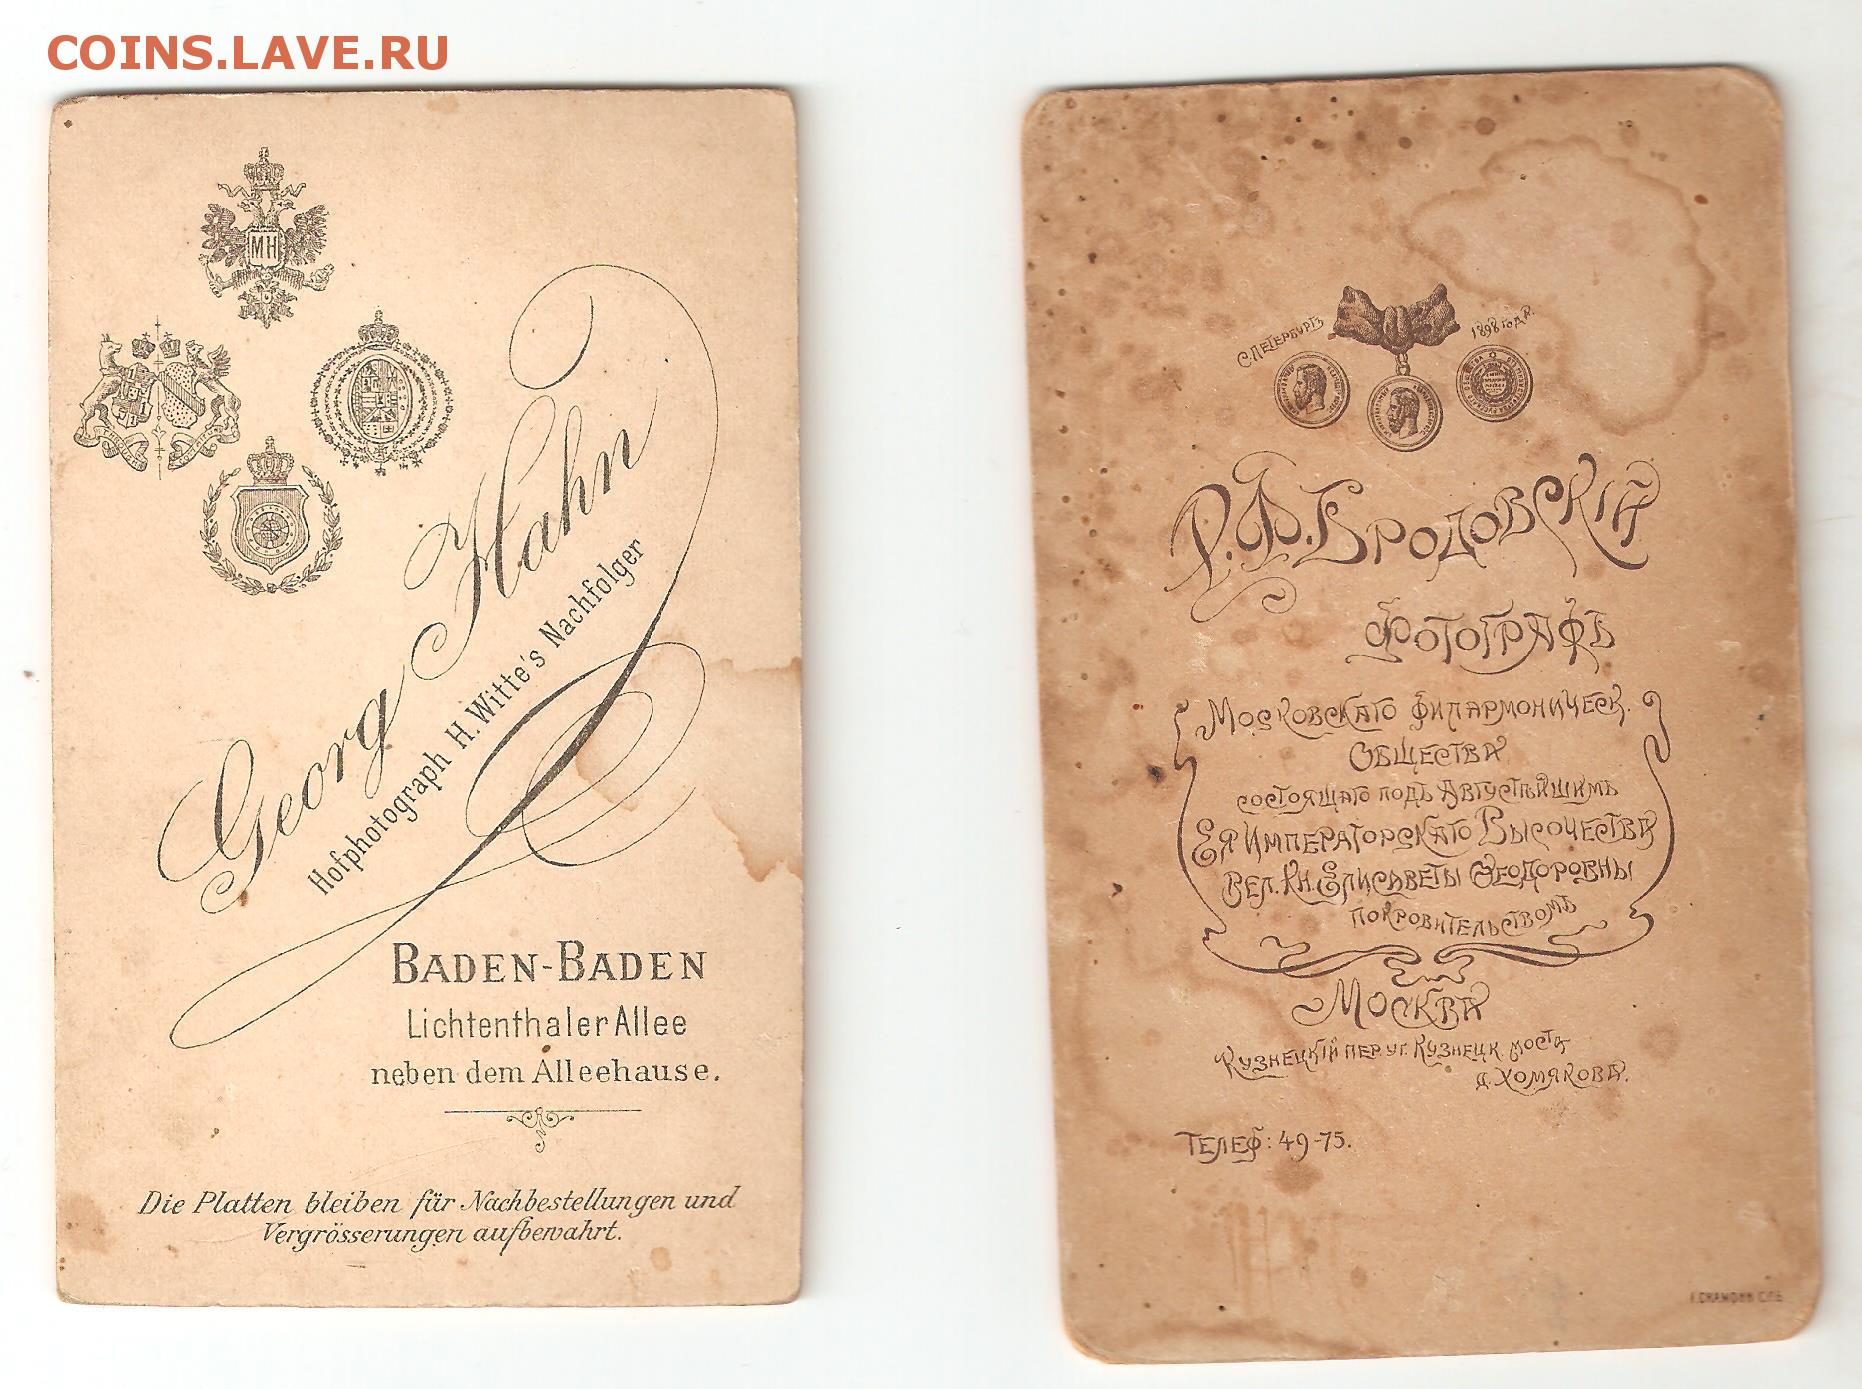 COINS.LAVE.RU
MH
Georg Hahn
Hofphotograph H. Witte's Nachfolger
BADEN-BADEN
Lichtenthaler Allee
neben dem Alleehause.
Die Platten bleiben für Nachbestellungen und
Vergrösserungen aufbewahrt.
С. Петербургъ 1898 года.
Р. Ф. Бродовскій
Фотографъ
Московскаго Филармоническ.
Общества
состоящаго подъ Августѣйшимъ
Ея Императорскаго Высочества
Вел. Кн. Елисаветы Ѳеодоровны
покровительствомъ
Москва
Кузнецкій пер. уг. Кузнецк. моста
д. Хомякова.
Телеф: 49-75.